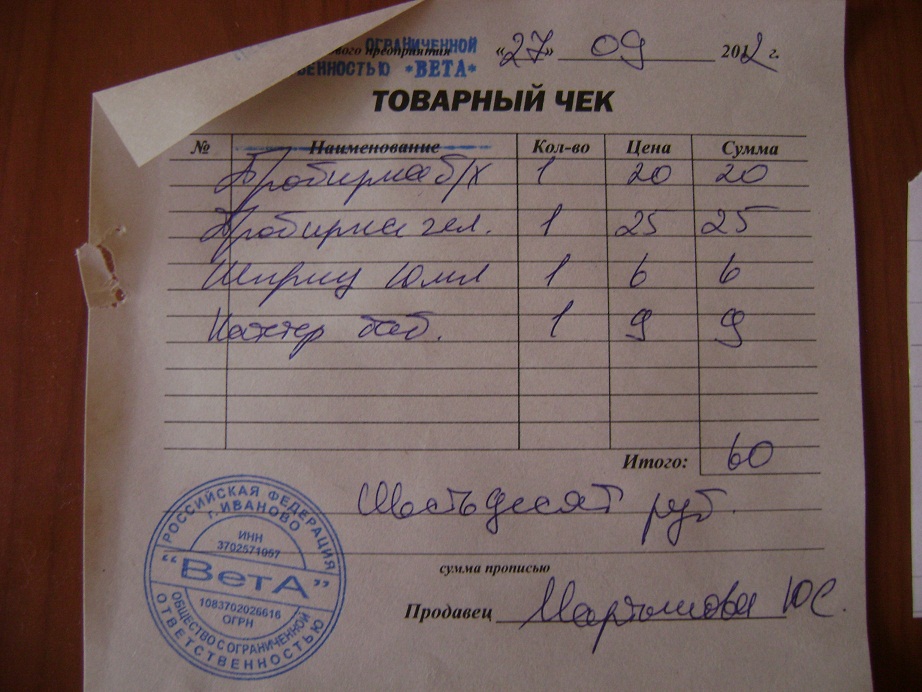 ового предприятия ОГРАНИЧЕННОЙ «27» 09 2012 г.
ВЕННОСТЬЮ *ВЕТА*
ТОВАРНЫЙ ЧЕК
№ Наименование Кол-во Цена Сумма
Пробирка б/х 1 20 20
Пробирка гел. 1 25 25
Шприц 10мл 1 6 6
Катетер баб. 1 9 9
Итого: 60
Шестьдесят руб.
сумма прописью
Продавец Мартынова Ю С.
РОССИЙСКАЯ ФЕДЕРАЦИЯ
Г. ИВАНОВО
ИНН
3702571057
"ВетА"
1083702026616
ОГРН
ОБЩЕСТВО С ОГРАНИЧЕННОЙ
ОТВЕТСТВЕННОСТЬЮ